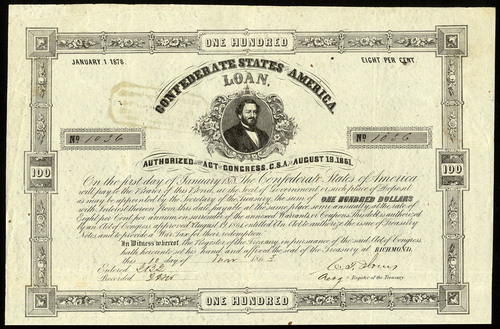 ONE HUNDRED
JANUARY 1 1878.
EIGHT PER CENT.
CONFEDERATE STATES AMERICA
LOAN.
No 1036
No 1036
AUTHORIZED ACT CONGRESS, C.S.A. AUGUST 19, 1861.
100
100
On the first day of January 1878 The Confederate States of America
will pay to the Bearer of this Bond, at the Seat of Government or such place of Deposit
as may be appointed by the Secretary of the Treasury, the sum of ONE HUNDRED DOLLARS
with Interest thereon from this date, payable at the same place, semi-annually at the rate of
Eight per Cent per annum, on surrender of the annexed Warrants or Coupons. This debt is authorized
By an Act of Congress approved August 19, 1861, entitled An Act to authorize the issue of Treasury
Notes and to provide a War Tax for their redemption.
In Witness whereof, the Register of the Treasury, in pursuance of the said Act of Congress
hath hereunto set his hand and affixed the seal of the Treasury, at RICHMOND,
this day of
Entered
Recorded
Register of the Treasury.
ONE HUNDRED